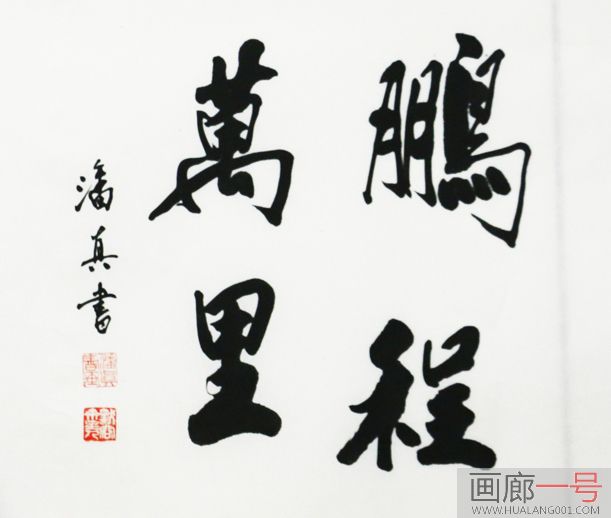 鵬程
萬里
潘真書
画廊一号
WWW.HUALANG001.COM